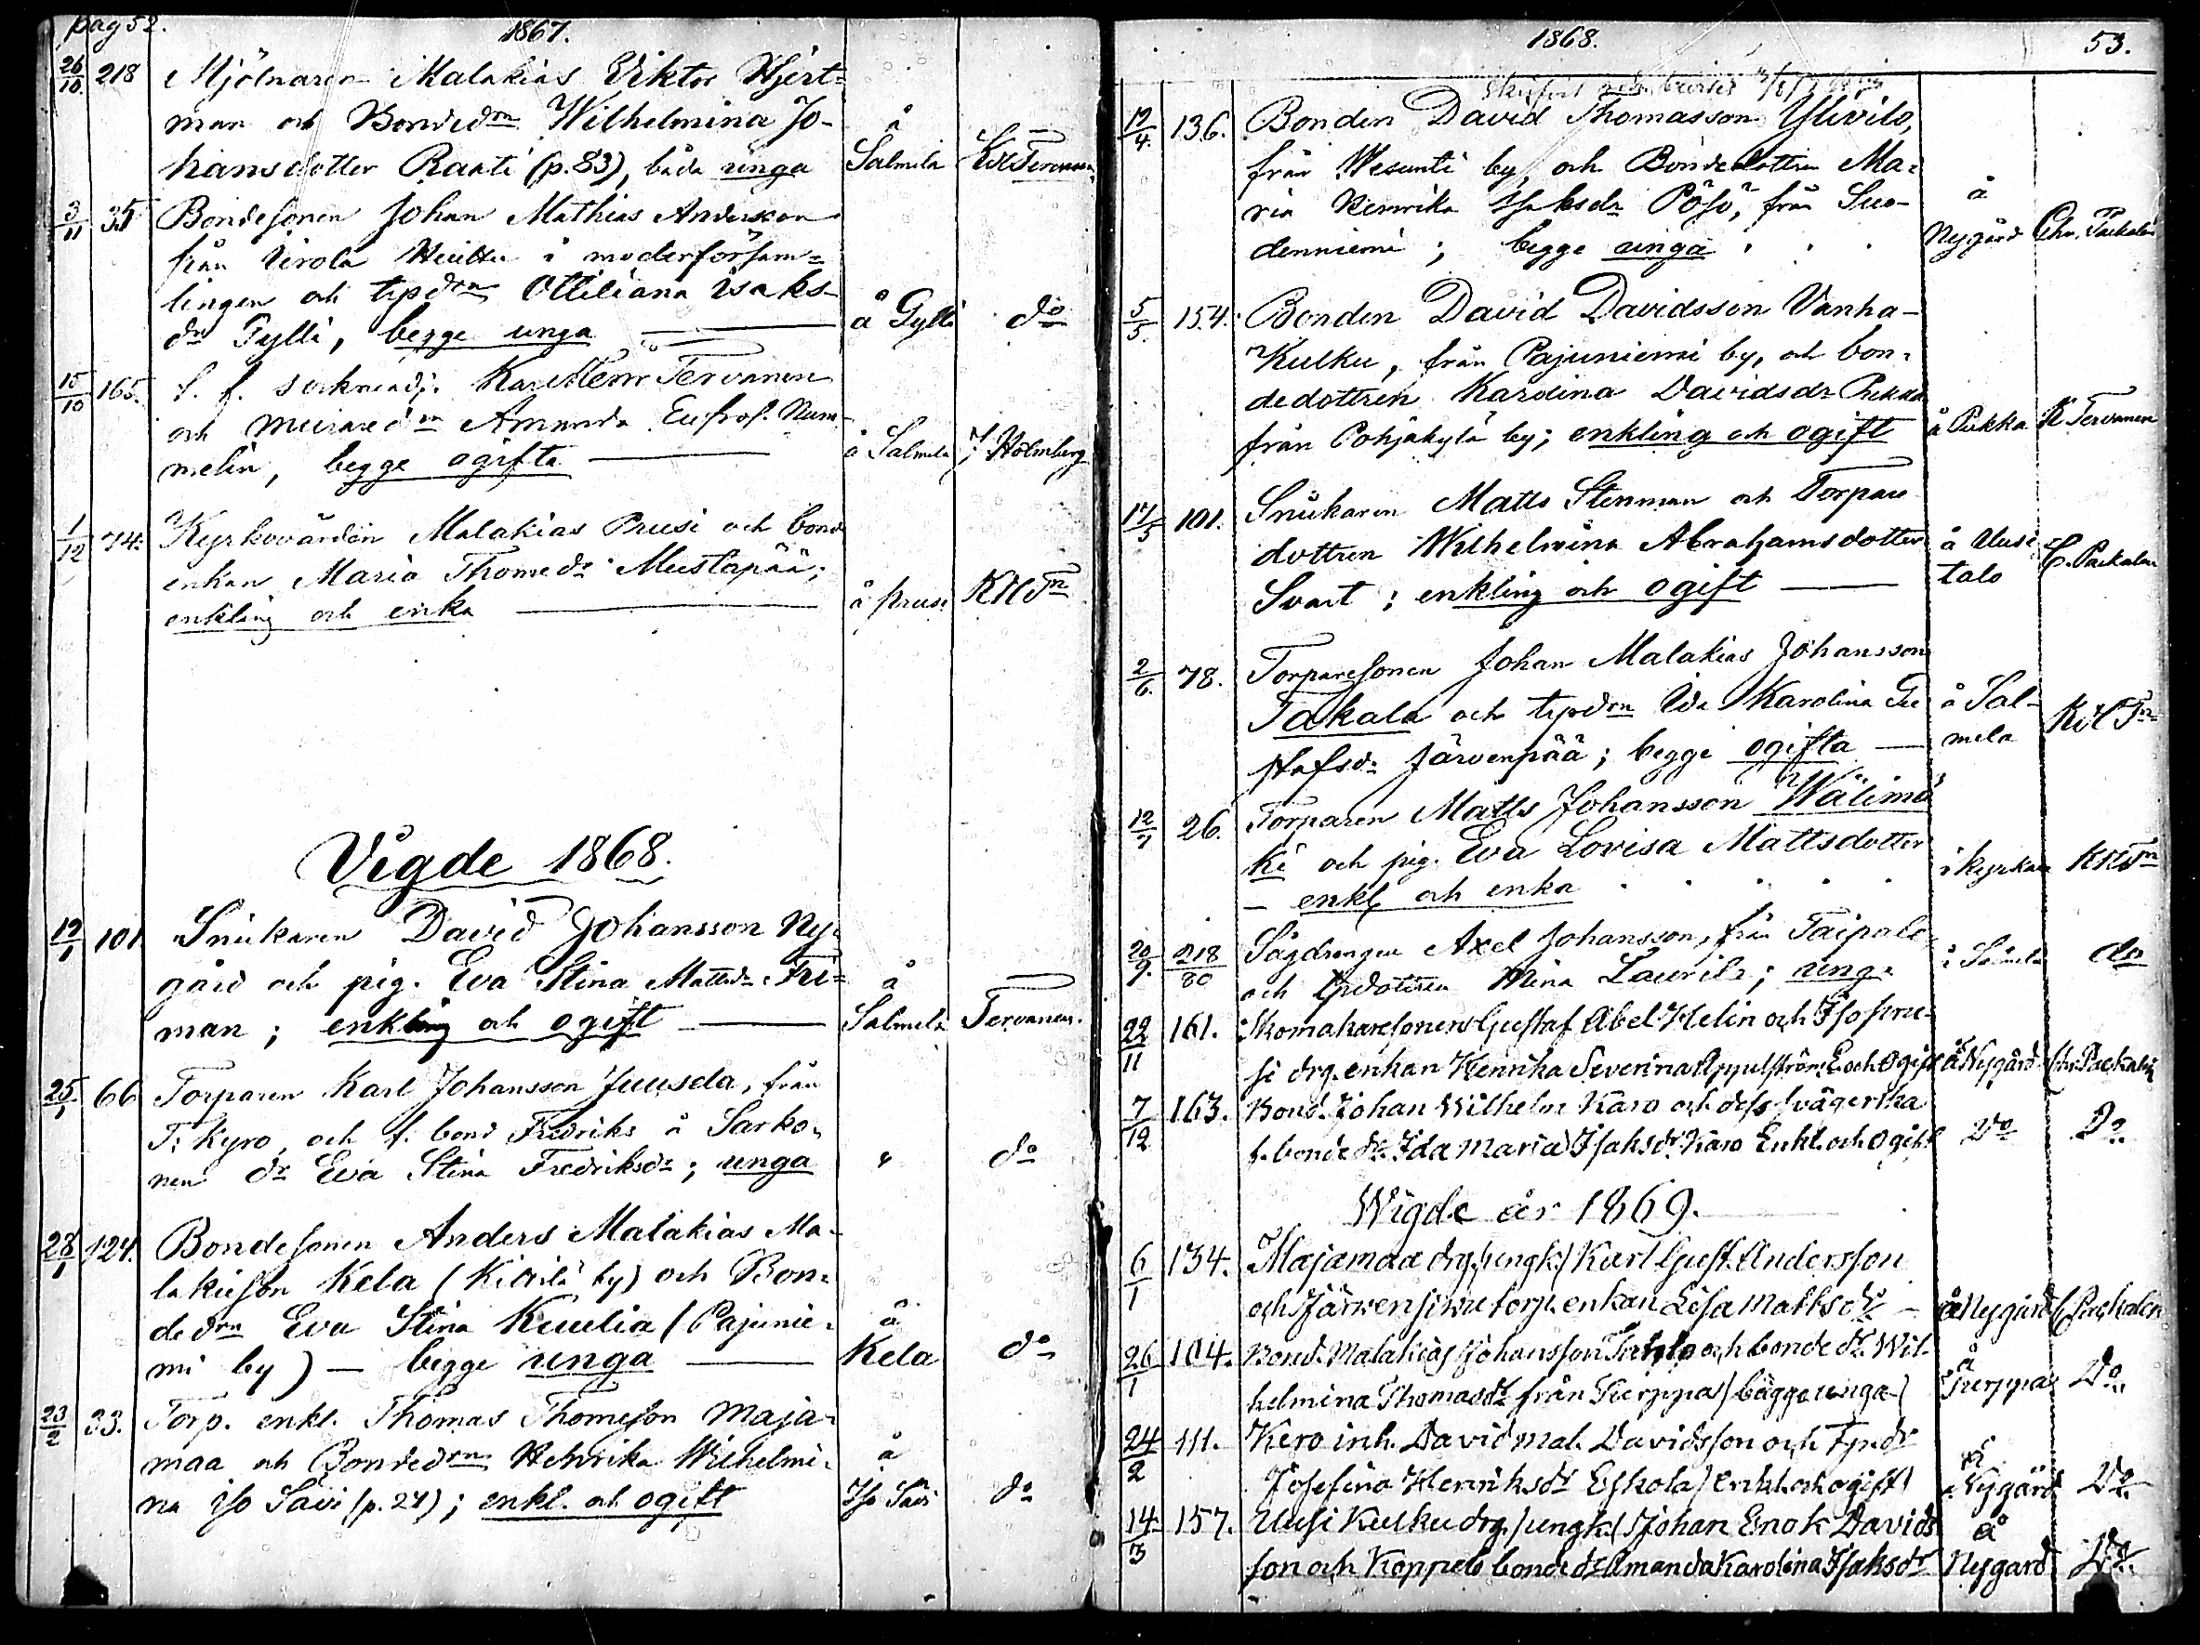 pag 52.
1867.
26/10. 218 Mjölnaren Malakias Viktor Hjert-
man och Bondedrn Wilhelmina Jo-
hansdotter Raati (p. 83), båda unga å Salmela
3/11 35 Bondesonen Johan Mathias Andersson
från Virola i moderförsam-
lingen och tpdrn Ottiliana Isaks-
dr Gylli, begge unga å Gylli do
15/10 165. f. f. Karl Henr Tervanen
och Amanda Eufros. Num-
melin, begge ogifta å Salmela J. Holmberg
1/12 74. Kyrkovärden Malakias Prusi och bond
enkan Maria Thomedr Mustapää;
enkling och enka å Prusi KHTn
Vigde 1868.
12/1 101 Snickaren David Johansson Ny-
gård och pig. Eva Stina Mattsdr Fri-
man; enkling och ogift å Salmela Tervanen.
25/1 66 Torparen Karl Johansson Juusela, från
T: Kyro, och f. bond Fredriks å Sarko-
nen dr Eva Stina Fredriksdr; unga " do
28/1 124. Bondesonen Anders Malakias Ma-
lakiesson Kela (Kittilä by) och Bon-
dedrn Eva Stina Kuulia (Pajunie-
mi by) — begge unga å Kela do
23/2 33. Torp. enkl. Thomas Thomesson Maja-
maa och Bondedrn Henrika Wilhelmi-
na Iso Savi (p. 27); enkl. och ogift å Iso Savi do
1868.
53.
12/4. 136. Bonden David Thomasson Ylivilo,
från Wesunti by, och Bondedottren Ma-
ria Henrika Isaksdr Pösö, från Suo-
denniemi; begge unga å Nygård Chr. Paekalen
5/5. 154. Bonden David Davidsson Vanha-
Kulku, från Pajuniemi by, och bon-
dedottren Karolina Davidsdr Pukka
från Pohjakylä by; enkling och ogift å Pukka K Tervanen
17/5 101. Snickaren Matts Stenman och Torpare
dottren Wilhelmina Abrahamsdotter
Svart; enkling och ogift å Uusi talo C. Paekalen
2/6. 78. Torparesonen Johan Malakias Johansson
Takala och tpdrn Ida Karolina Gu
stafsdr Järvenpää; begge ogifta å Sal- mela KHTn
12/7 26. Torparen Matts Johansson Wälimä
ki och pig. Eva Lovisa Mattsdotter
— enkl och enka i kyrkan KHTn
20/9. 218/80 Sågdrengen Axel Johansson, från Taipale
och tpdottren Mina Laurila; unga å Salmela do
22/11 161. Skomakaresonen Gustaf Abel Helin och Iso pru-
si drg. enkan Henrika Severina Appelström E. och Ogift å Nygård Chr. Paekalen
7/12 163. Bond. Johan Wilhelm Karo och dess svägerska
f. bonde dr. Ida Maria Isaksdr Karo Enkl. och Ogift Do Do
Wigde år 1869.
6/1 134. Majamaa drg. (ungk.) Karl Gust. Andersson
och Järvensivu torp. enkan Lisa Mattsdr å Nygård C. Paekalen
26/1 104. Bond. Malakias Johansson och bonde dr. Wil-
helmina Thomasdr från Pierppa (bägge unga) å Pierppa Do
24/2 111. Kero inh. David Mal. Davidsson och Tp. dr
Josefina Henriksdr Eskola (enkl. och ogift) å Nygård Do
14/3 157. Uusi Kulku drg. (ungk.) Johan Enok Davids
son och Koppelo bonde dr Amanda Karolina Isaksdr å Nygård Do